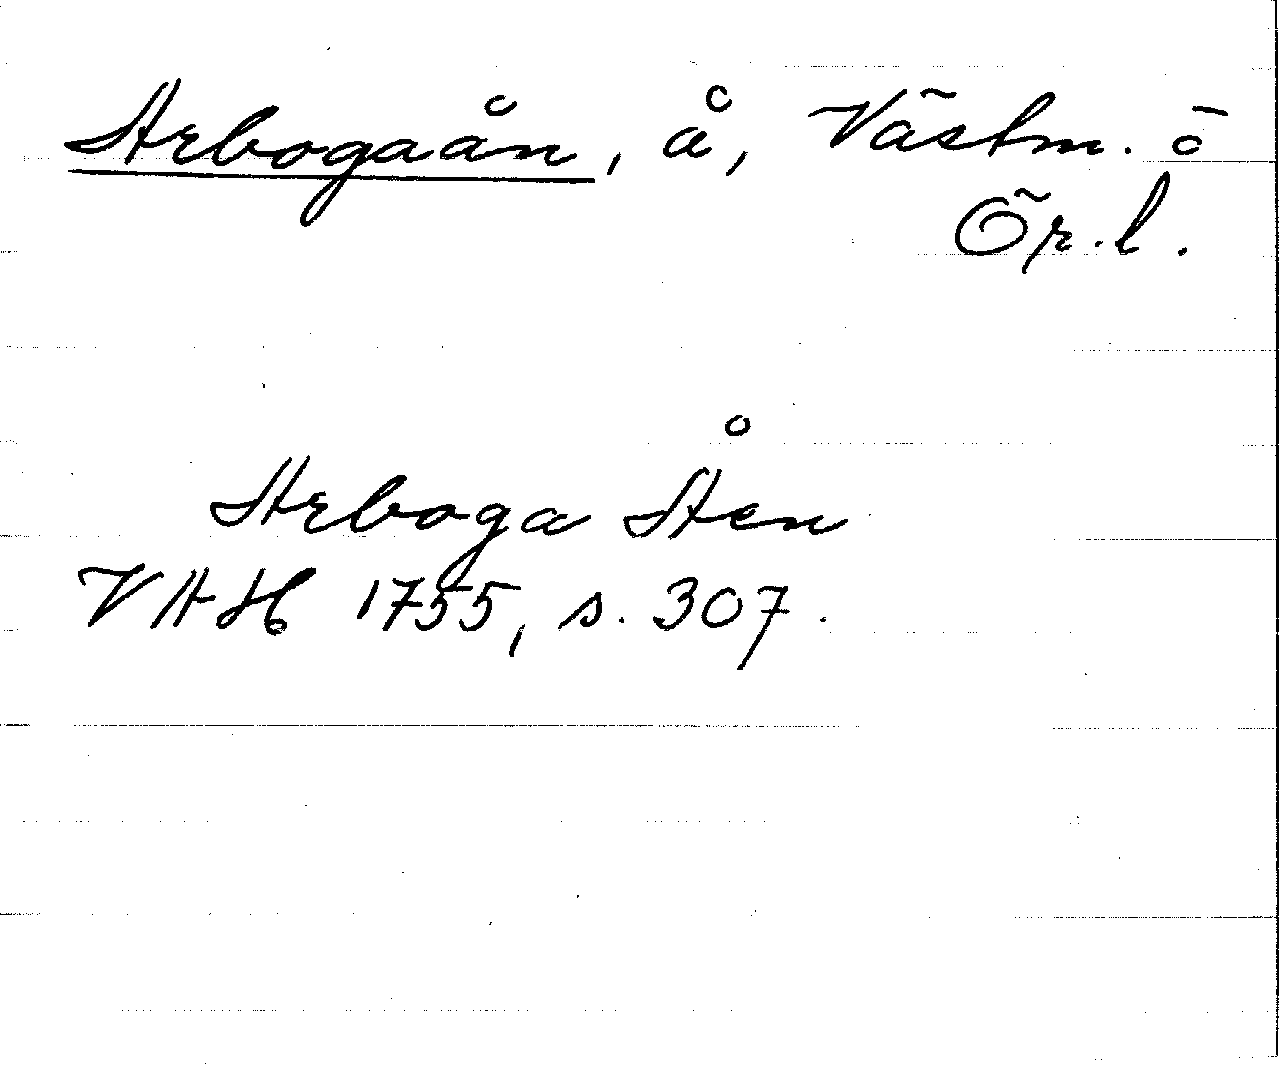 Arbogaån, å, Västm. o
Ör. l.
Arboga Åen
VAH 1755, s. 307.